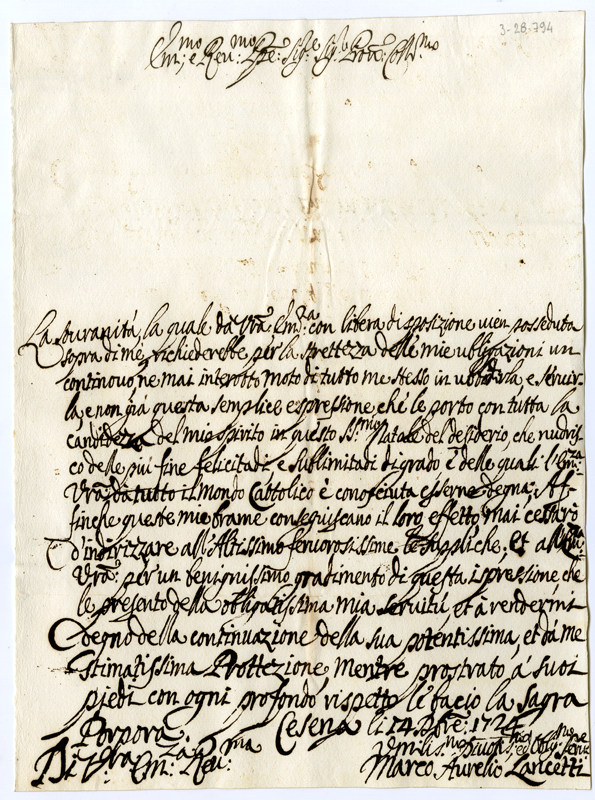 3-28-794
Em:mo e Rev:mo Pre: Sig:e Sig:e Prōn: Coll:mo
La Souranità, la quale da Vrā: Em:za con libera disposizione vien posseduta
sopra di me, richiederebbe per la strettezza delle mie ubligazioni un
continovo, ne mai interotto moto di tutto me stesso in ubbidirla, e servir-
la, e non già questa semplice espressione, che le porto con tutta la
candidezza del mio spirito in questo SS:mo Natale del desiderio, che nudris-
co delle più fine felicitadi, e sublimitadi di grado, e delle quali l'Em:za
Vrā: da tutto il Mondo Cattolico è conosciuta esserne degna; Af-
finche queste mie brame conseguiscano il loro effetto, mai cessarò
d'indirizzare all'Altissimo fervorosissime le suppliche, et all'Em:za
Vrā: per un benignissimo gradimento di questa ispressione, che
le presento della obligatissima mia servitù, et à rendermi
degno della continuazione della sua potentissima, et da me
Stimatissima Prottezione mentre prostrato a' suoi
piedi con ogni profondo rispetto le bacio la Sagra
Porpora. Cesena li 14 Xbre: 1724
Di V:ra Em:za Rev:ma
Vmilis:mo Divotis:mo ed Oblig:mo Serv:e
Marco Aurelio Lancetti